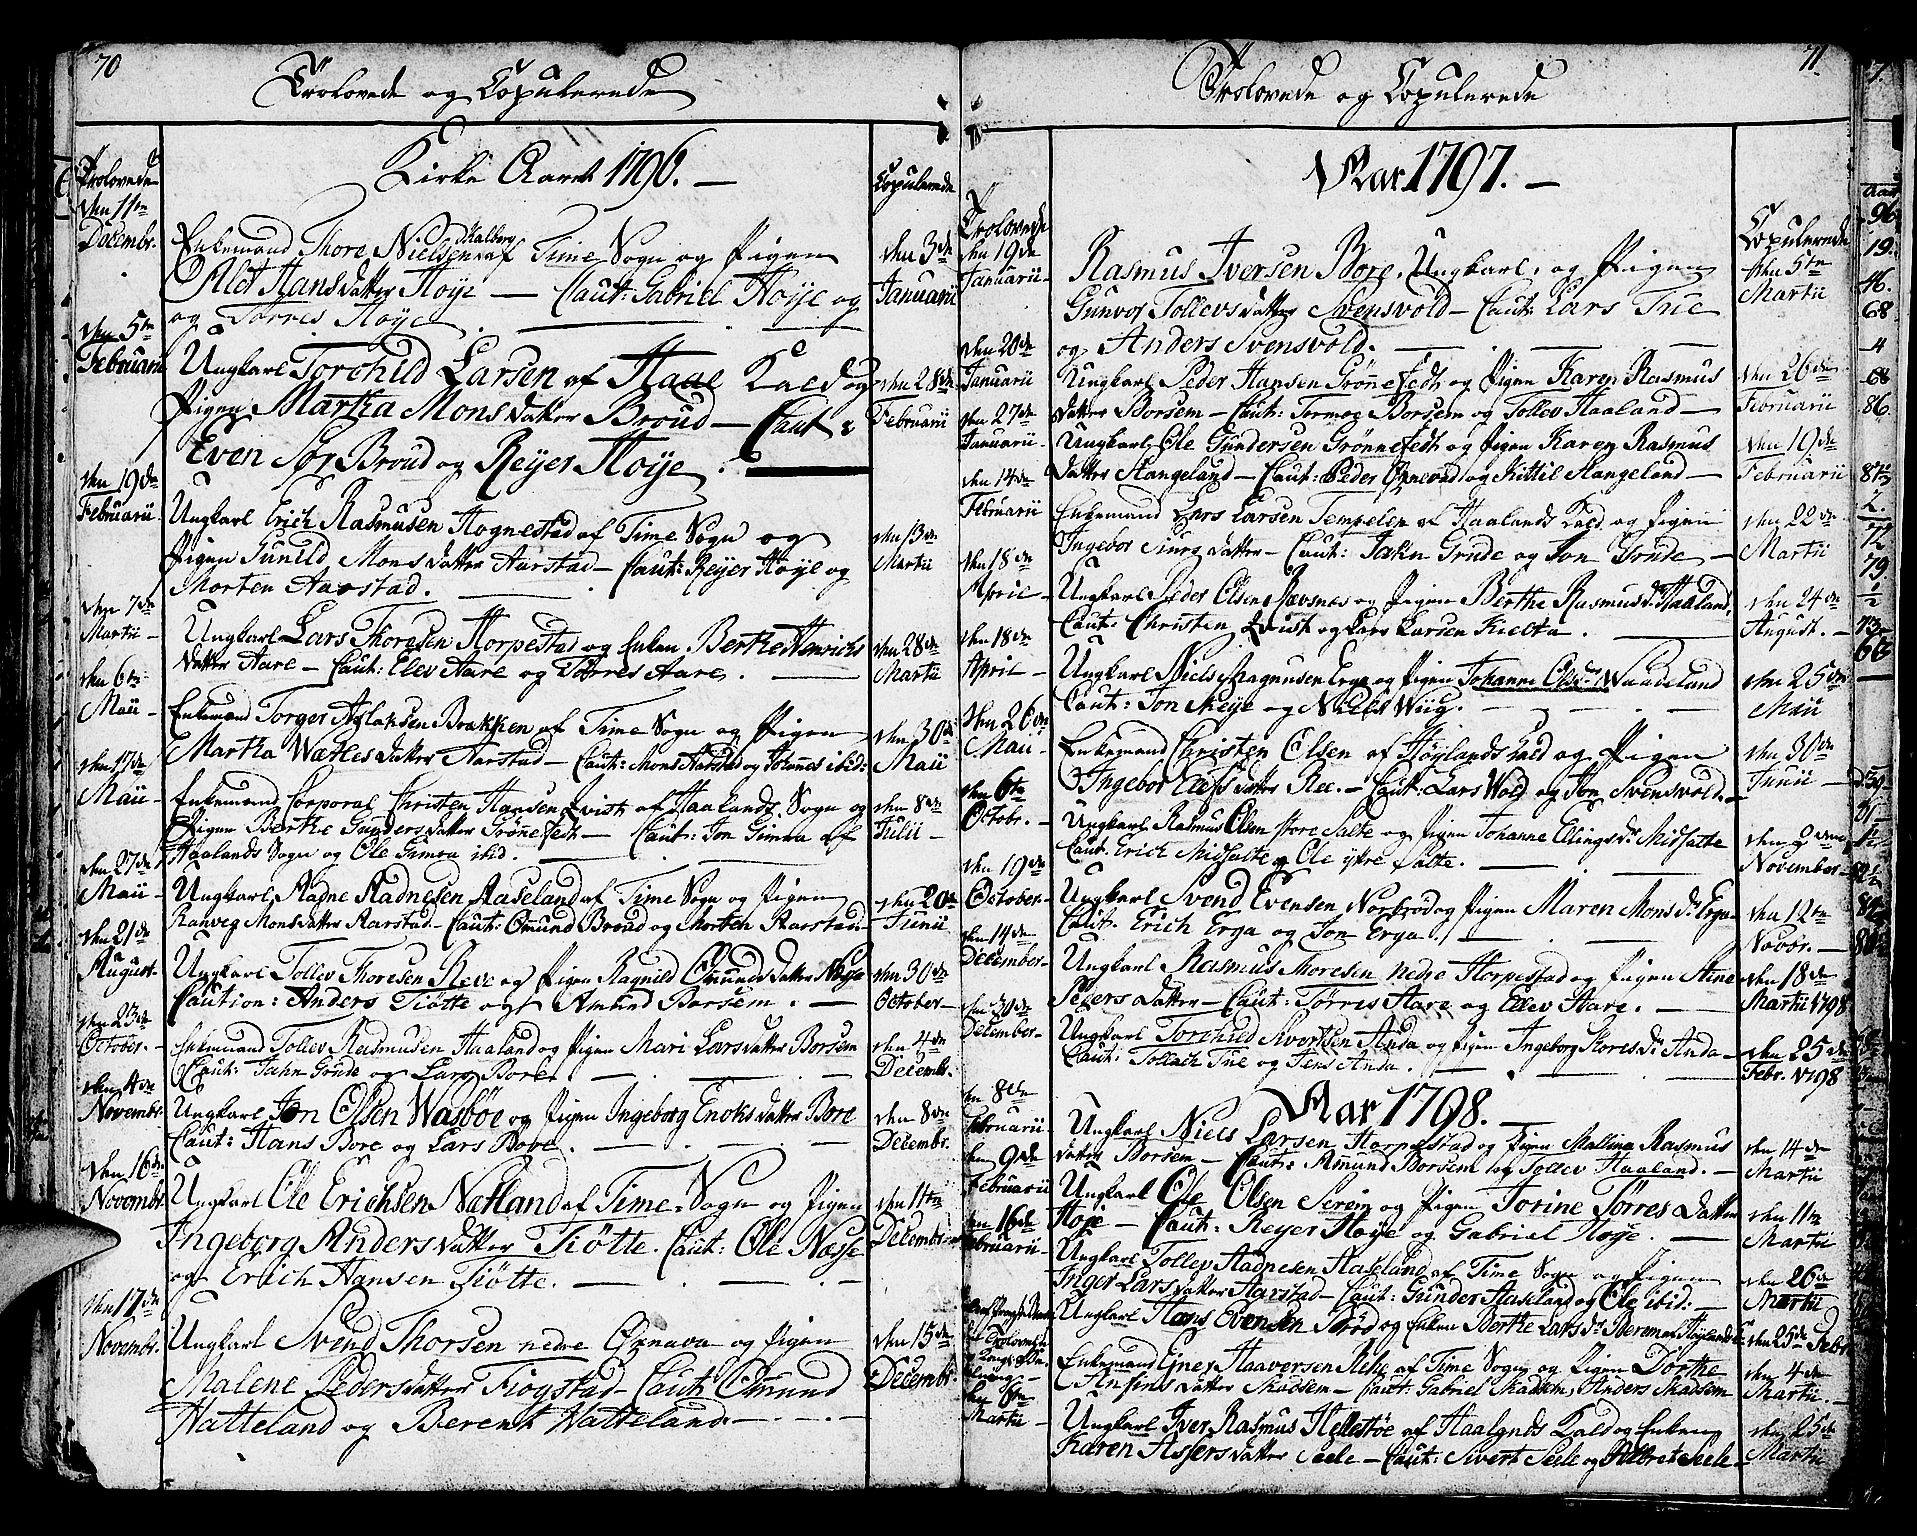 70
Trolovede og Copulerede
Trolovede
Kirke Aaret 1796. —
Copulerede
den 11te
Decembr.
Enkemand Thore Nielsen Kalberg af Time Sogn og Pigen
Alet Hansdatter Høye — Caut: Gabriel Høye og
og Tørres Høye
den 3de
Januarii
den 5te
Februarii
Ungkarl Torchild Larsen af Haae Kald og
Pigen Martha Monsdatter Broud — Caut:
Even Sør Broud og Reyer Høye.
den 28de
Februarii
den 19de
Februarii
Ungkarl Erich Rasmusen Hognestad af Time Sogn og
Pigen Gunild Monsdatter Aarstad — Caut: Reyer Høye og
Morten Aarstad.
den 13de
Martii
den 7de
Martii —
Ungkarl Lars Thoresen Horpestad og Enken Berthe Henrichs
datter Aare — Caut: Elev Aare og Tørres Aare.
den 28de
Martii
den 6te
Maii —
Enkemand Torger Aslaksen Brakken af Time Sogn og Pigen
Martha Wætlesdatter Aarstad — Caut: Mons Aarstad og Johannes ibid:
den 30de
Maii
den 17de
Maii —
Enkemand Corporal Christen Hansen Qvist af Haalands Sogn og
Pigen Berthe Gundersdatter Grønefedt — Caut: Jon Gimra af
Haalands Sogn og Ole Gimra ibid.
den 8de
Julii —
den 27de
Maii —
Ungkarl Aadne Aadnesen Aaseland af Time Sogn og Pigen
Ranveg Monsdatter Aarstad — Caut: Omund Broud og Morten Aarstad —
den 20de
Junii
den 21de
August.
Ungkarl Tollev Thoresen Reve og Pigen Ragnild Omundsdatter Næsse
Caution: Anders Tiøtte og Amund Borsem. —
den 30de
October —
den 23de
October. —
Enkemand Tollev Rasmusen Haaland og Pigen Mari Larsdatter Borsem
Caut: Jahn Grude og Lars Bore.
den 4de
Decembr.
den 4de
Novembr.
Ungkarl Jon Olsen Wasbøe og Pigen Ingeborg Enoksdatter Bore
Caut: Hans Bore og Lars Bore.
den 8de
Decembr.
den 16de
Novembr.
Ungkarl Ole Erichsen Natland af Time Sogn og Pigen
Ingeborg Andersdatter Tiøtte. Caut: Ole Næsse
og Erich Hansen Tiøtte.
den 11te
Decembr.
den 17de
Novembr.
Ungkarl Svend Thorsen nedre Øxnava og Pigen
Malene Pedersdatter Friogstad — Caut: Omund
Hatteland og Berent Hatteland —
den 15de
Decembr.
71.
Trolovede og Copulerede
Aar 1797. —
Trolovede
Copulerede
den 19de
Januarii
Rasmus Iversen Bore, Ungkarl, og Pigen
Gunvor Tollevsdatter Svensvold — Caut: Lars Tue
og Anders Svensvold.
den 5te
Martii
den 20de
Januarii
Ungkarl Peder Hansen Grønnefedt og Pigen Karen Rasmus
datter Borsem — Caut: Tormoe Borsem og Tollev Haaland —
den 26de
Februarii
den 27de
Januarii
Ungkarl Ole Gundersen Grønnefedt og Pigen Karen Rasmus
datter Stangeland — Caut: Peder Øxnevad og Kittil Stangeland —
den 19de
Februarii
den 14de
Februarii
Enkemand Lars Larsen Tempelen af Haalands Kald og Pigen
Ingebor Siurs datter — Caut: Jakn Grude og Jon Grude —
den 22de
Martii
den 18de
April —
Ungkarl Peder Olsen Rævsnes og Pigen Berthe Rasmusdr Haaland,
Caut: Christen Qvist og Lars Larsen Kielta.
den 24de
August. —
den 18de
April —
Ungkarl Niels Magnusen Erga og Pigen Johanne Olsdr Waadeland
Caut: Jon Meye og Niels Wiig.
den 25de
Maii
den 26de
Maii —
Enkemand Christen Olsen af Høylands Kald og Pigen
Ingebor Elefsdatter Ree. — Caut: Lars Wold og Jon Svensvold. —
den 30de
Junii
den 6te
Octobr. —
Ungkarl Rasmus Olsen store Salte og Pigen Johanne Ellingsdr Midsalte
Caut: Erich Midsalte og Ole ytre Salte.
den 2den
November —
den 19de
October —
Ungkarl Svend Evensen Norbrod og Pigen Maren Monsdr Erga
Caut. Erich Erga og Jon Erga.
den 12te
Novbr. —
den 14de
December —
Ungkarl Rasmus Thoresen nedre Horpestad og Pigen Stine
Pedersdatter — Caut: Tørres Aare og Ellev Aare.
den 18de
Martii 1798
den 29de
December —
Ungkarl Torchild Sivertsen Anda og Pigen Ingeborg Thoresdr Anda —
Caut: Tollach Tue og Jens Anda.
den 25de
Febr. 1798
Aar 1798. —
den 8de
Februarii —
Ungkarl Niels Larsen Horpestad og Pigen Mallina Rasmus
datter Borsem — Caut: Amund Borsem og Tollev Haaland. —
den 14de
Martii
den 9de
Februarii
Ungkarl Ole Olsen Sereim og Pigen Torine Tørres datter
Høje — Caut: Reyer Høye og Gabriel Høye.
den 11te
Martii
den 16de
Februarii —
Ungkarl Tollev Aadnesen Aaseland af Time Sogn og Pigen
Inger Larsdatter Aarstad — Caut: Gunder Haaseland og Ole ibid: —
den 26de
Martii
Ungkarl Hans Evensen Brød og Enken Berthe Larsdr
den 25de Febr
Enkemand Ejner Haaversen Reke af Time Sogn og Pigen Dorthe
Ansinsdatter Skadsem — Caut: Gabriel Skadsem, Anders Skadsem
den 4de
Martii.
Martii —
Ungkarl Iver Rasmus Hellestøe af Haalands Kald og Enken
Karen Assersdatter Seele — Caut: Sivert Seele og Albret Seele —
den 25de
Martii